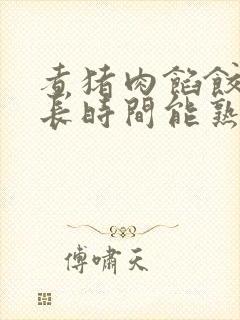 煮猪肉馅餃
長時間能熟
傅嘯天